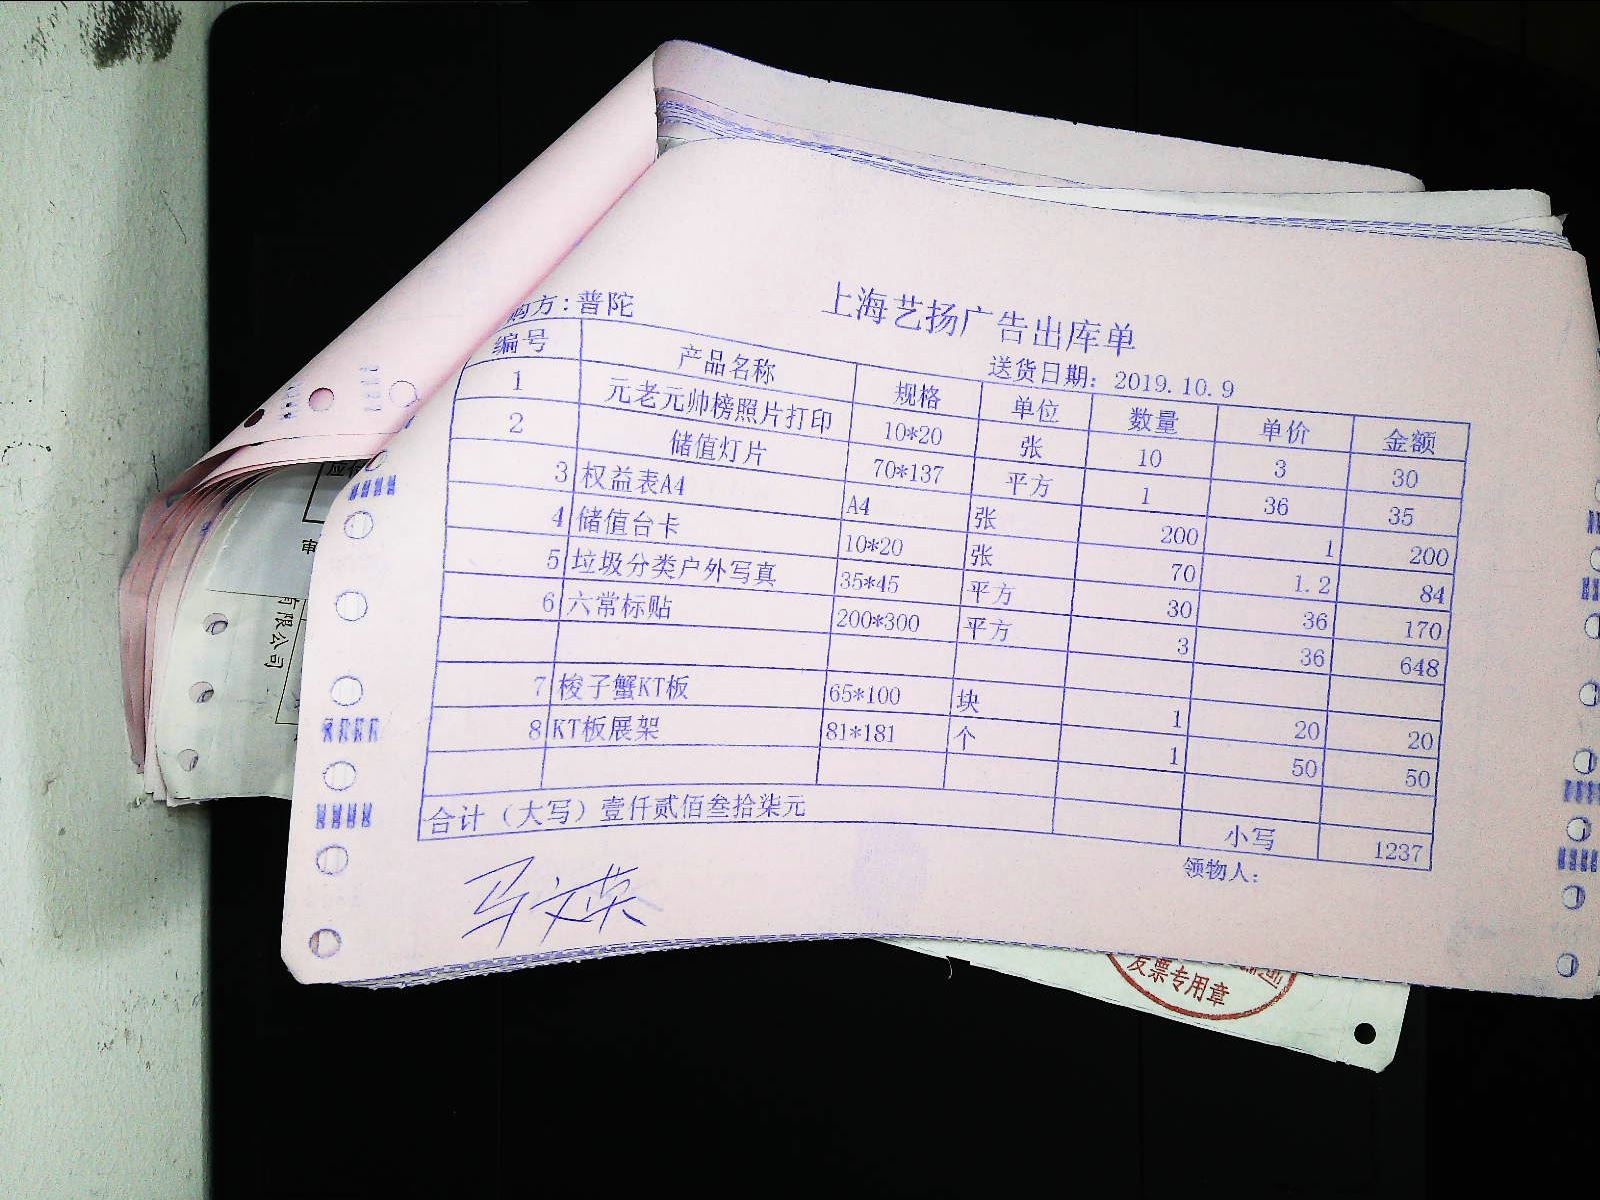 上海艺扬广告出库单
购方:普陀
送货日期: 2019.10.9
编号 产品名称 规格 单位 数量 单价 金额
1 元老元帅榜照片打印 10*20 张 10 3 30
2 储值灯片 70*137 平方 1 36 35
3 权益表A4 A4 张 200 1 200
4 储值台卡 10*20 张 70 1.2 84
5 垃圾分类户外写真 35*45 平方 30 36 170
6 六常标贴 200*300 平方 3 36 648
7 梭子蟹KT板 65*100 块 1 20 20
8 KT板展架 81*181 个 1 50 50
合计（大写）壹仟贰佰叁拾柒元 小写 1237
领物人:
马文英
审
有限公司
发票专用章